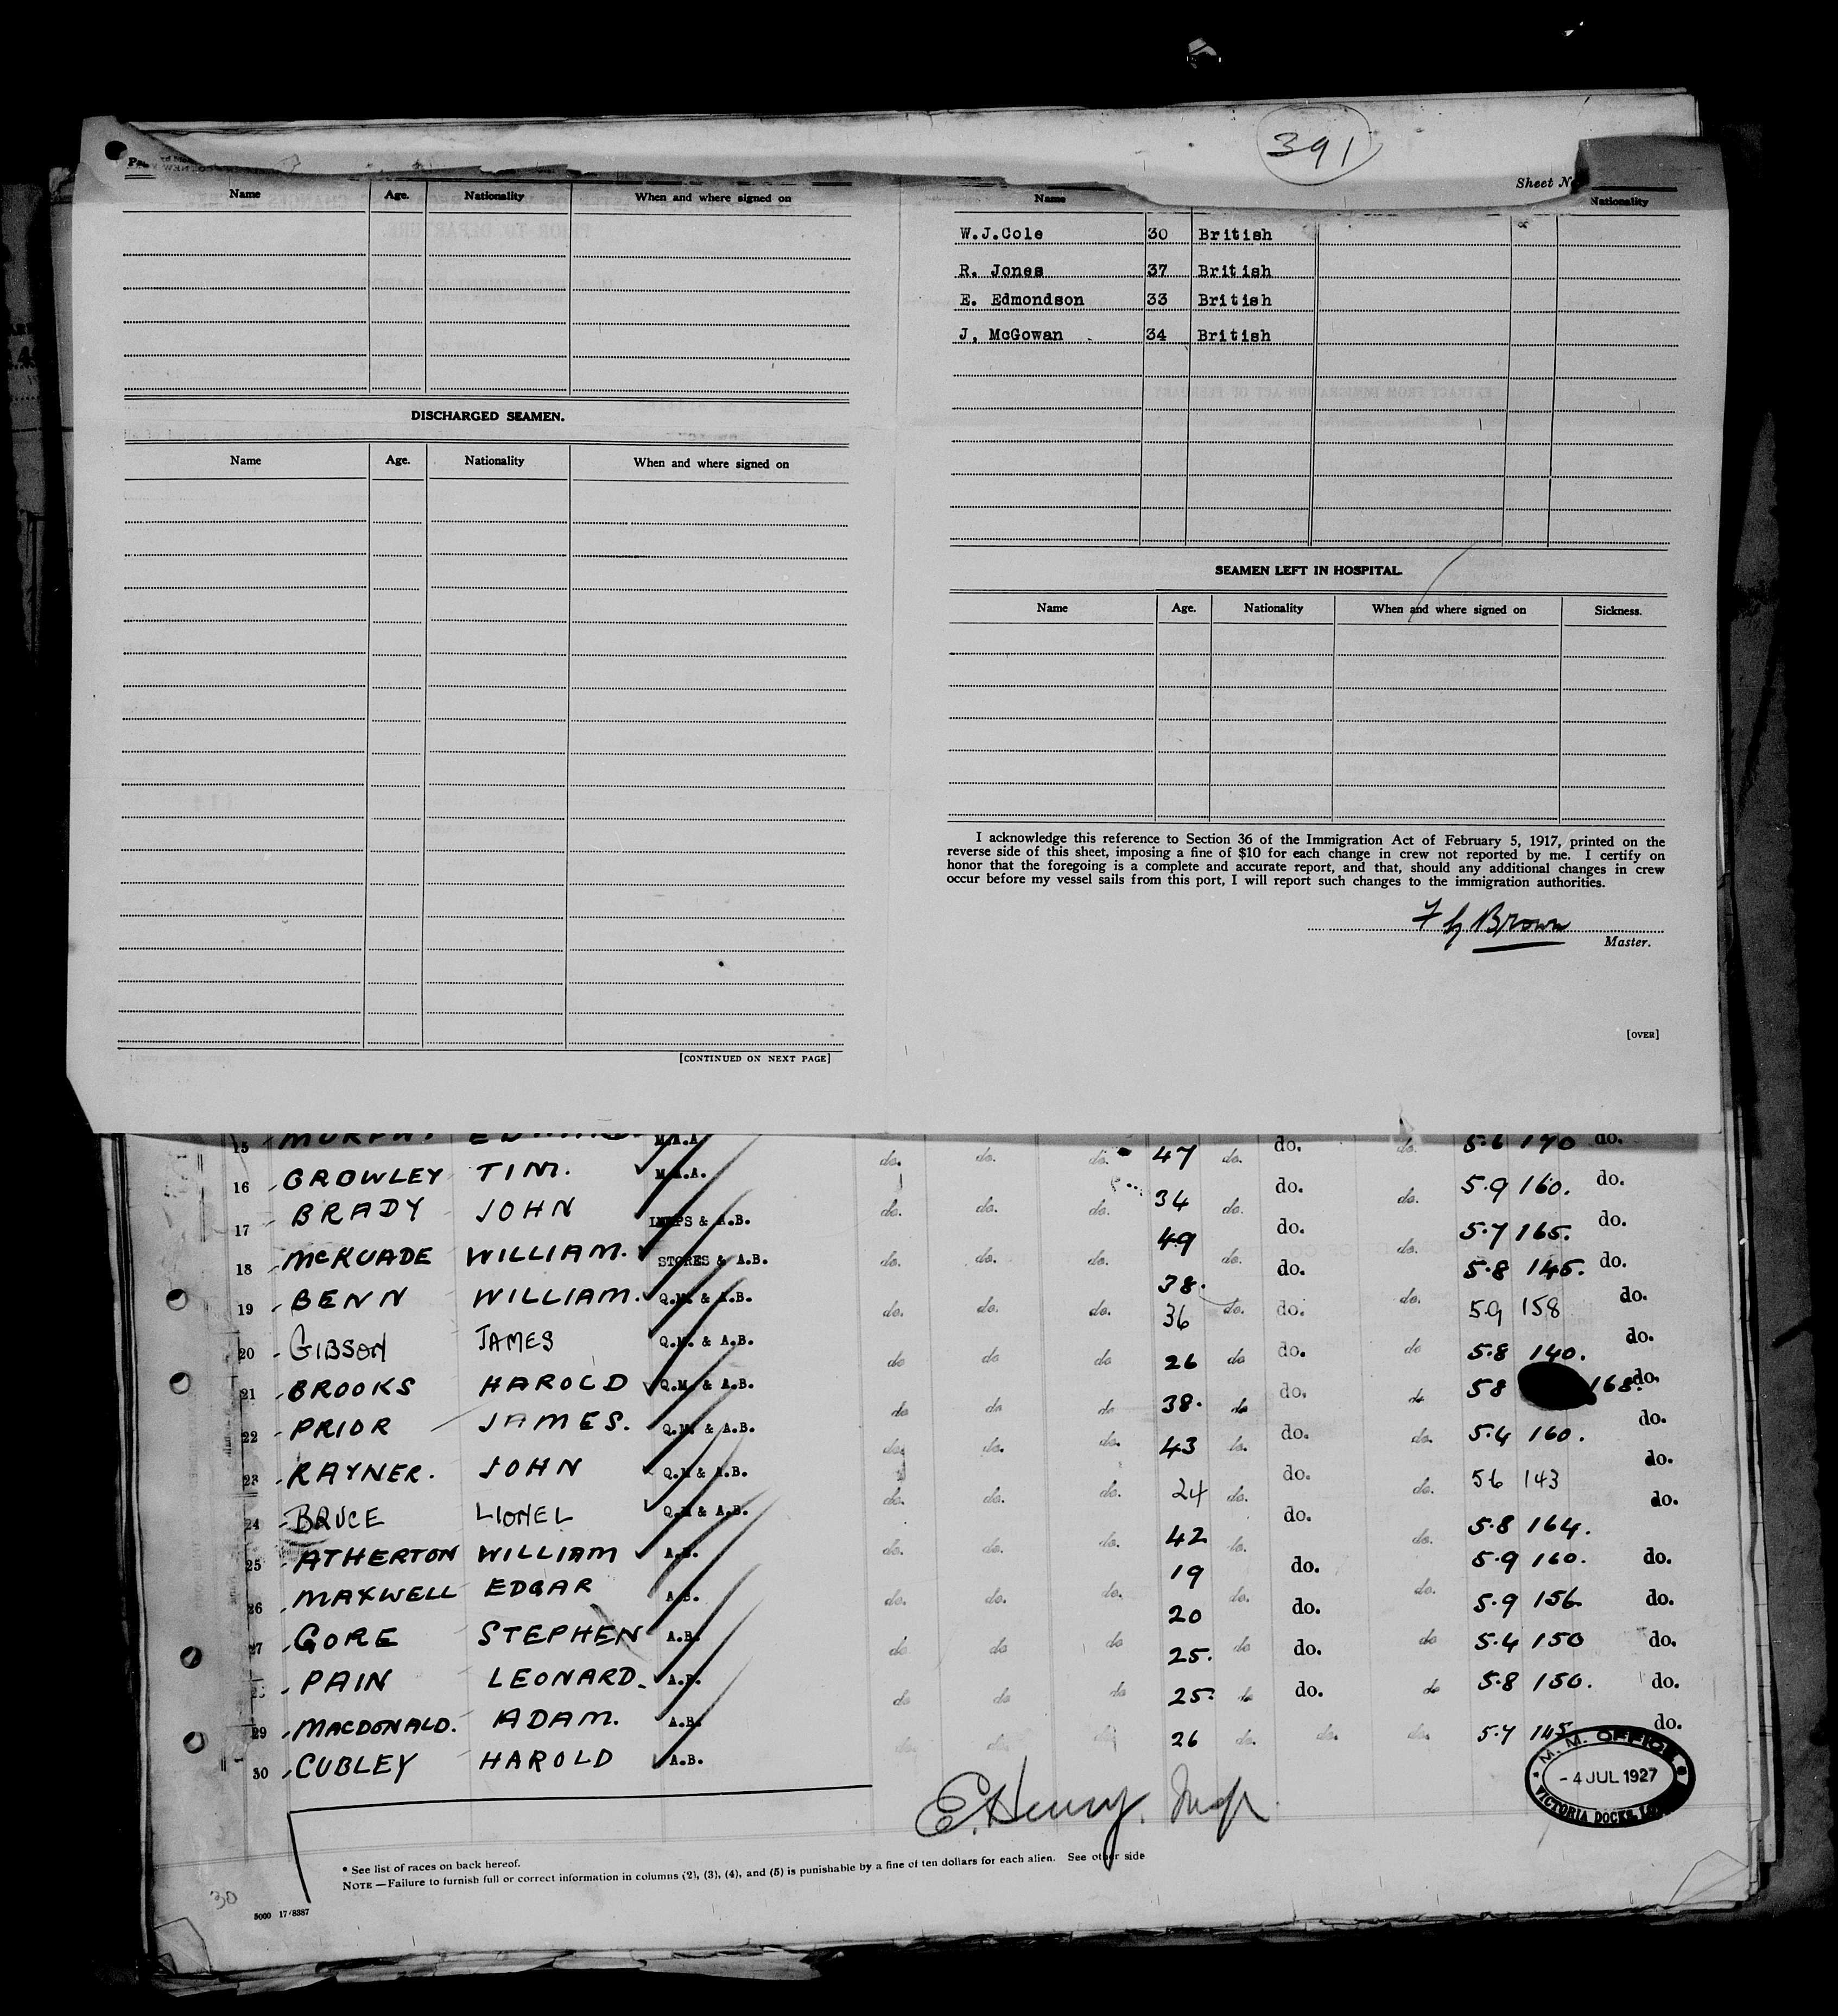 391
Sheet No
Name Age. Nationality When and where signed on
Name Nationality
W.J.Cole 30 British
R. Jones 37 British
E. Edmondson 33 British
J. McGowan 34 British
DISCHARGED SEAMEN.
Name Age. Nationality When and where signed on
[CONTINUED ON NEXT PAGE]
SEAMEN LEFT IN HOSPITAL.
Name Age. Nationality When and where signed on Sickness.
I acknowledge this reference to Section 36 of the Immigration Act of February 5, 1917, printed on the
reverse side of this sheet, imposing a fine of $10 for each change in crew not reported by me. I certify on
honor that the foregoing is a complete and accurate report, and that, should any additional changes in crew
occur before my vessel sails from this port, I will report such changes to the immigration authorities.
Brown
Master.
[OVER]
15 MURPHY M.A.A. 47 do. do. 5.6 170 do.
16 CROWLEY TIM. M.A.A. do. do. do. 34 do. do. do. 5.9 160. do.
17 BRADY JOHN LAMPS & A.B. do. do. do. 49 do. do. do. 5.7 165. do.
18 McKUADE WILLIAM. STORES & A.B. do. do. do. 38. do. do. do. 5.8 145. do.
19 BENN WILLIAM. Q.M. & A.B. do. do. do. 36 do. do. do. 5.9 158 do.
20 GIBSON JAMES Q.M. & A.B. do do do 26 do do. do 5.8 140. do.
21 BROOKS HAROLD Q.M. & A.B. do do do 38. do do. do 5 8 168. do.
22 PRIOR JAMES. Q.M. & A.B. do. do. do. 43 do. do. do. 5.4 160. do.
23 RAYNER. JOHN Q.M & A.B. do. do. do. 24 do. do. do. 5 6 143 do.
24 BRUCE LIONEL Q.M & A.B. do. do. do. 42 do. do. do. 5.8 164. do.
25 ATHERTON WILLIAM A.B. 19 do. 5.9 160. do.
26 MAXWELL EDGAR A.B. do. do. do. 20 do. do. do. 5.9 156 do.
27 GORE STEPHEN A.B. do do do 25. do do. do 5.4 150 do.
28 PAIN LEONARD. A.B. do do do 25. do do. do 5.8 150. do.
29 MACDONALD. ADAM. A.B. do do do 26 do. do. do. 5.7 145 do.
30 CUBLEY HAROLD A.B.
M. M. OFFICE
- 4 JUL 1927
VICTORIA DOCKS,
E. Henry.
* See list of races on back hereof.
NOTE — Failure to furnish full or correct information in columns (2), (3), (4), and (5) is punishable by a fine of ten dollars for each alien. See other side
30
5000 17/8387